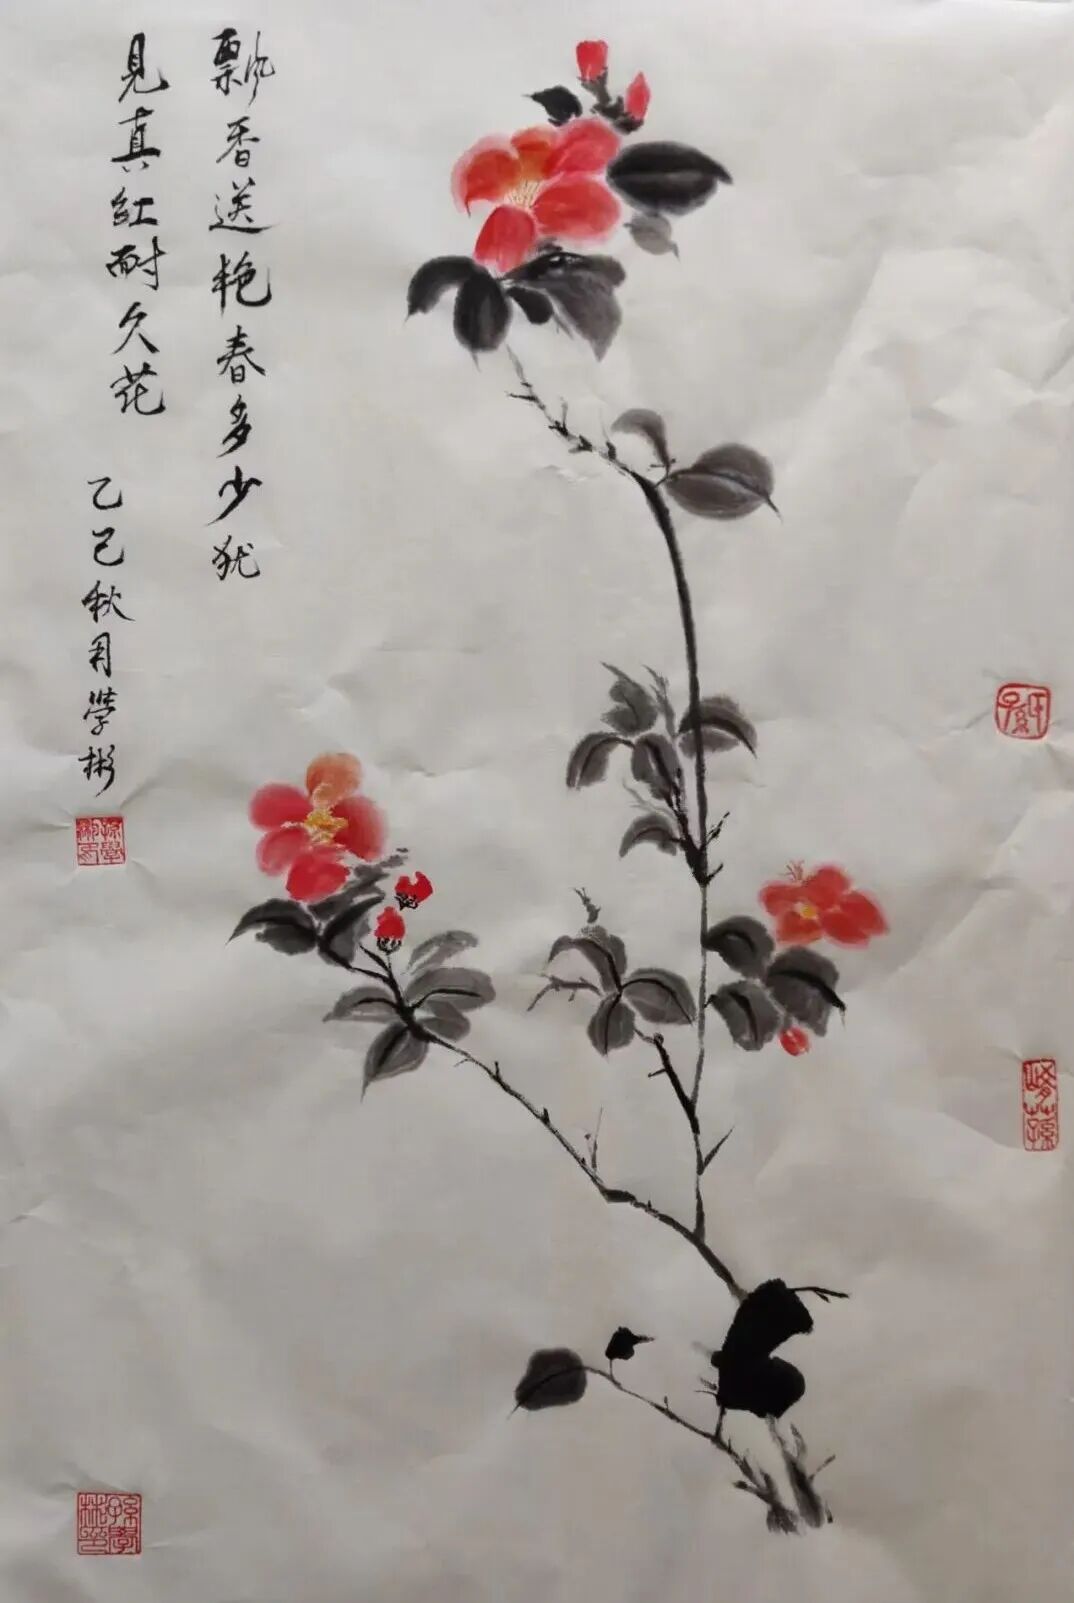 飘香送艳春多少犹
見真红耐久花
乙巳秋月學彬